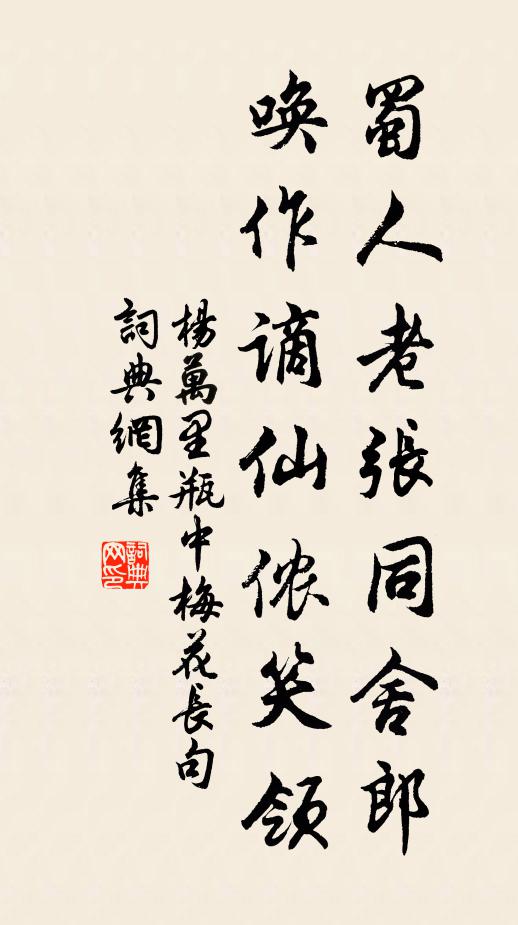 蜀人老張同舍郎
唤作谪仙侬笑领
楊萬里瓶中梅花長句
詞典網集
詞典网印